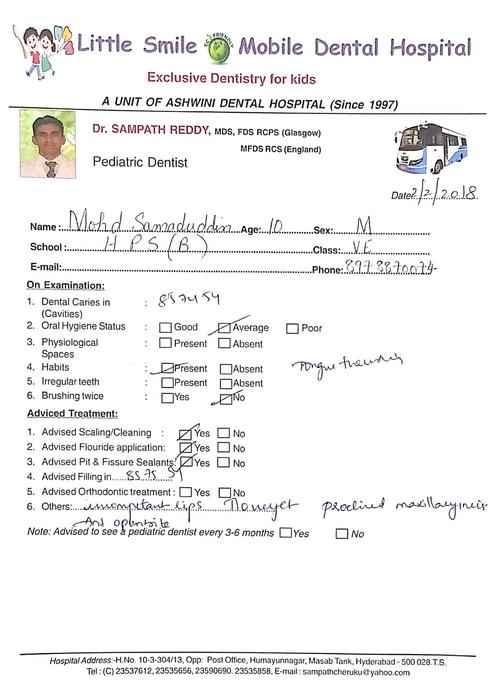 Little Smile Mobile Dental Hospital
Exclusive Dentistry for kids
A UNIT OF ASHWINI DENTAL HOSPITAL (Since 1997)
Dr. SAMPATH REDDY, MDS, FDS RCPS (Glasgow)
MFDS RCS (England)
Pediatric Dentist
Date 2/2/2018
Name: Mohd Samaduddin Age: 10 Sex: M
School: H P S (B) Class: V E
E-mail: Phone: 8978870074
On Examination:
1. Dental Caries in : 85 74 54
(Cavities)
2. Oral Hygiene Status : Good Average Poor
3. Physiological : Present Absent
Spaces
4. Habits : Present Absent Tongue thrusting
5. Irregular teeth : Present Absent
6. Brushing twice : Yes No
Adviced Treatment:
1. Advised Scaling/Cleaning : Yes No
2. Advised Flouride application: Yes No
3. Advised Pit & Fissure Sealants: Yes No
4. Advised Filling in 85 75 54
5. Advised Orthodontic treatment : Yes No
6. Others: lips proclined maxillary
And openbite
Note: Advised to see a pediatric dentist every 3-6 months Yes No
Hospital Address:-H.No. 10-3-304/13, Opp: Post Office, Humayunnagar, Masab Tank, Hyderabad - 500 028.T.S.
Tel : (C) 23537612, 23535656, 23590690. 23535858, E-mail : sampathcheruku@yahoo.com